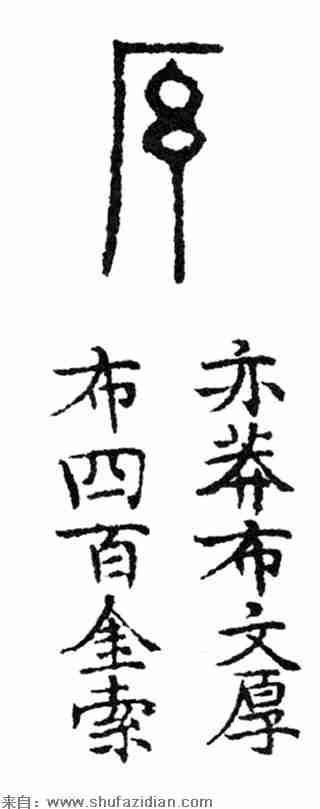 厚
亦莽布文厚
布四百金索
来自：www.shufazidian.com